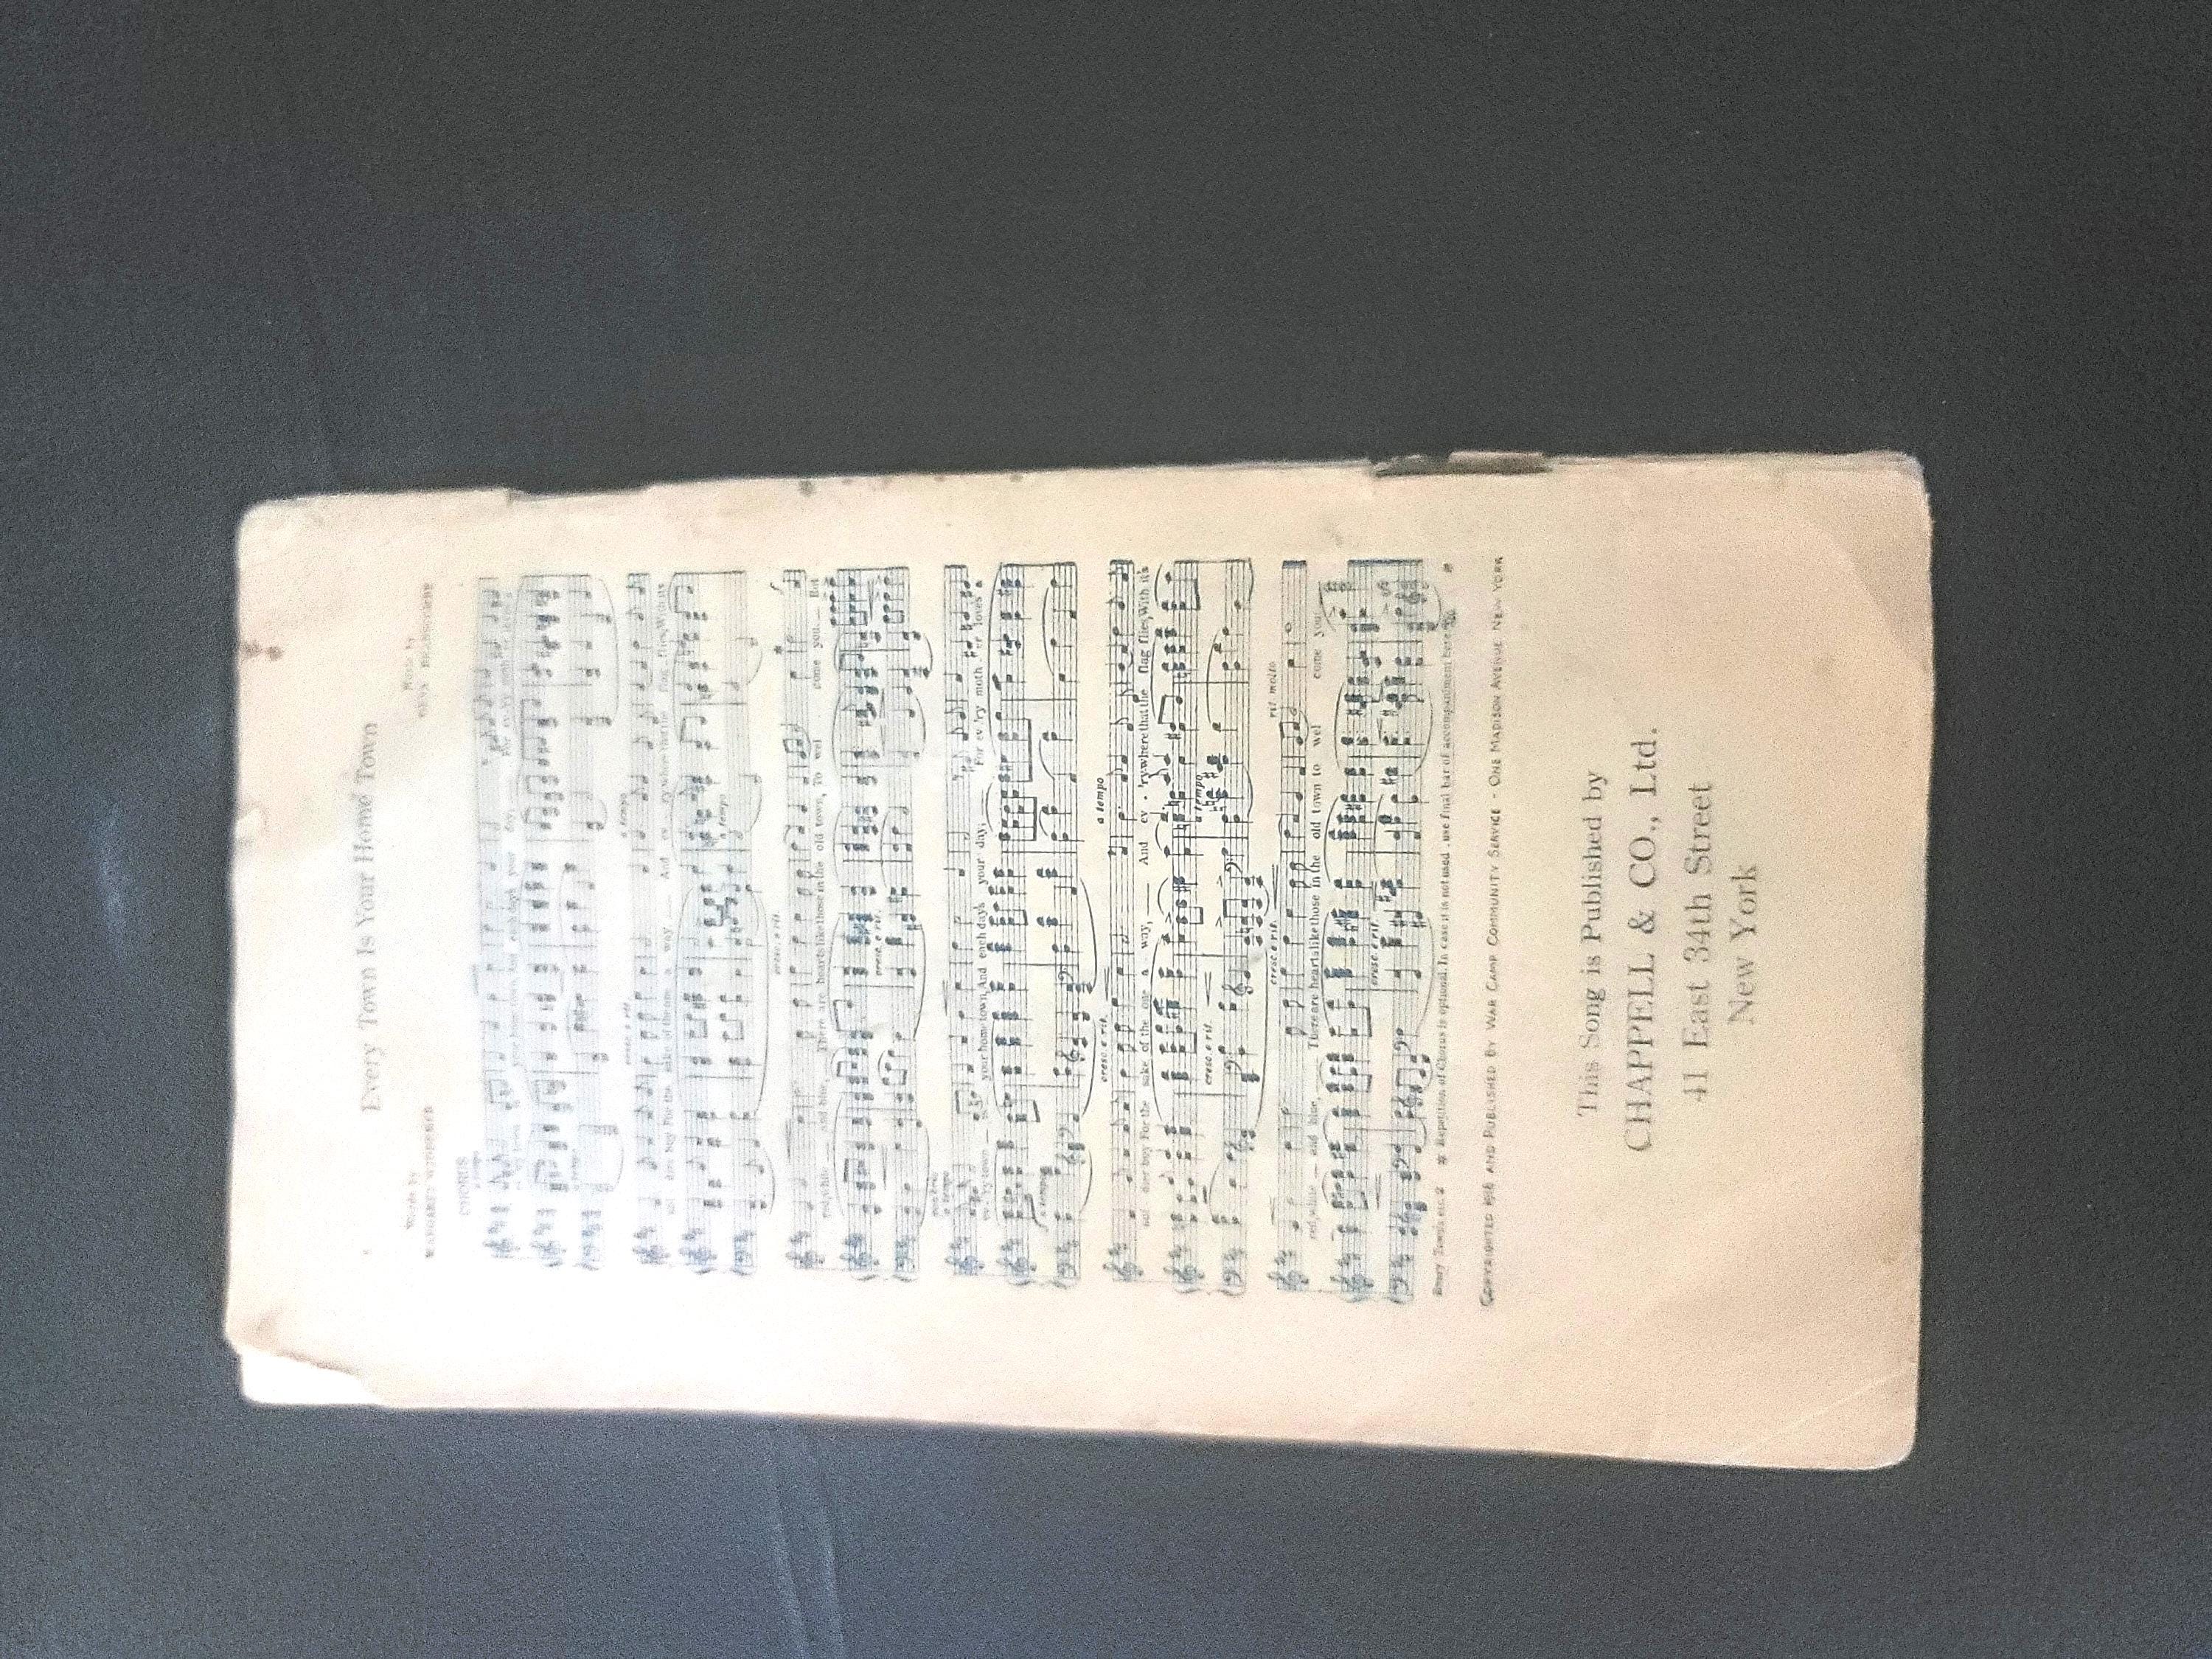 Every Town Is Your Home Town
Words by
MARGARET WIDDEMER
Music by
CHORUS
a tempo
your home town, And each day's your day, For ev'ry moth er loves
cresc. e rit.
a tempo
not dear boy For the sake of the one a way, And ev 'ry where that the flag flies, With its
a tempo
cresc. e rit.
red, white and blue, There are hearts like those in the old town, To wel come you. But
cresc. e rit.
a tempo
ev 'ry town is your home town, And each day's your day, For ev 'ry moth er loves a
a tempo
cresc. e rit.
a tempo
not dear boy For the sake of the one a way, And ev 'ry where that the flag flies, With it's
cresc. e rit.
a tempo
cresc. e rit.
rit. molto
red, white and blue, There are hearts like those in the old town to wel come you.
cresc. e rit.
Every Town is etc. 2 * Repetition of Chorus is optional. In case it is not used, use final bar of accompaniment here
COPYRIGHTED 1918 AND PUBLISHED BY WAR CAMP COMMUNITY SERVICE - ONE MADISON AVENUE NEW YORK
This Song is Published by
CHAPPELL & CO., Ltd.
41 East 34th Street
New York